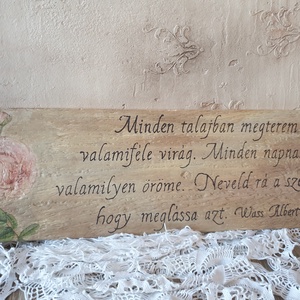 Minden talajban megterem
valamiféle virág. Minden napnak
valamilyen öröme. Neveld rá a sze
hogy meglássa azt. Wass Albert